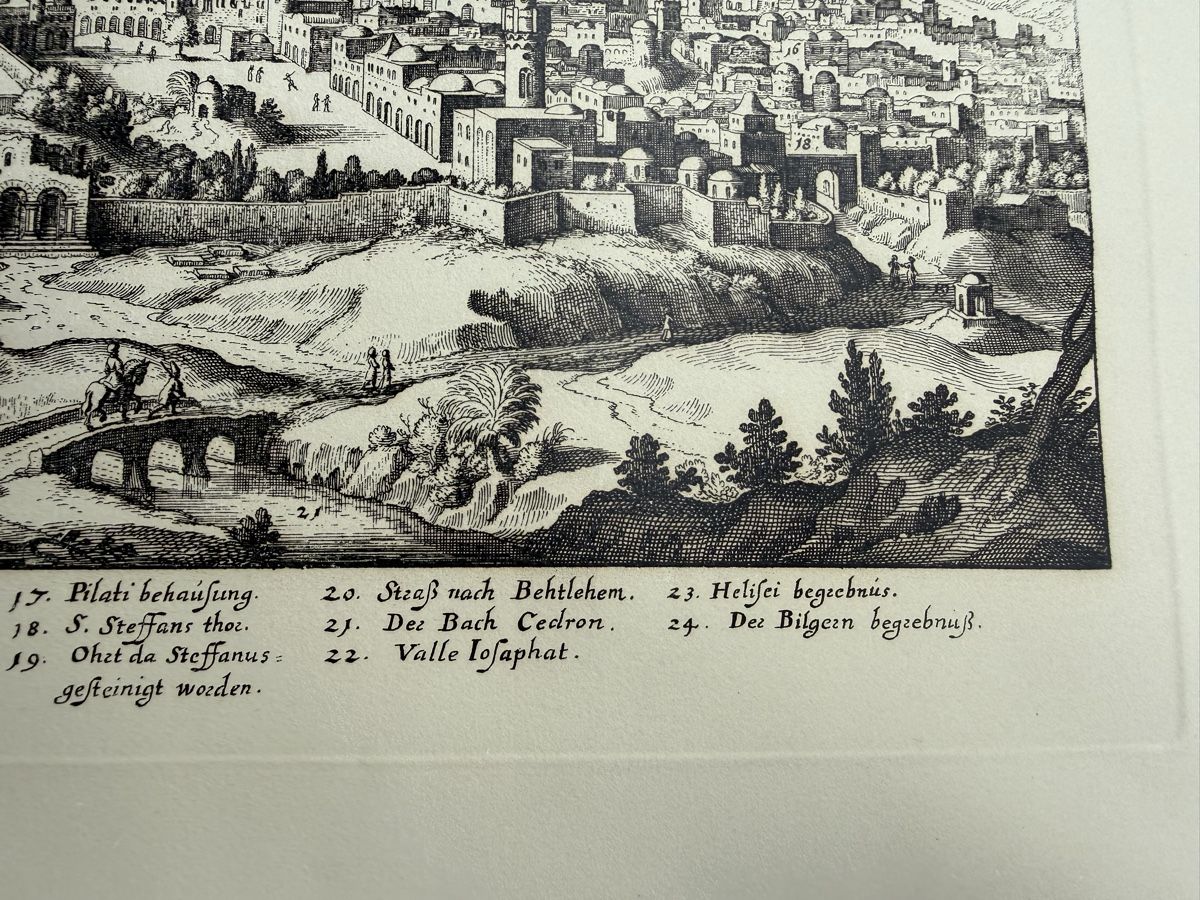 16
18
19
21
17. Pilati behaúſung.
18. S. Steffans thor.
19. Ohrt da Steffanus=
geſteinigt worden.
20. Straß nach Behtlehem.
21. Der Bach Cedron.
22. Valle Ioſaphat.
23. Heliſei begrebnús.
24. Der Bilgern begrebnuß.